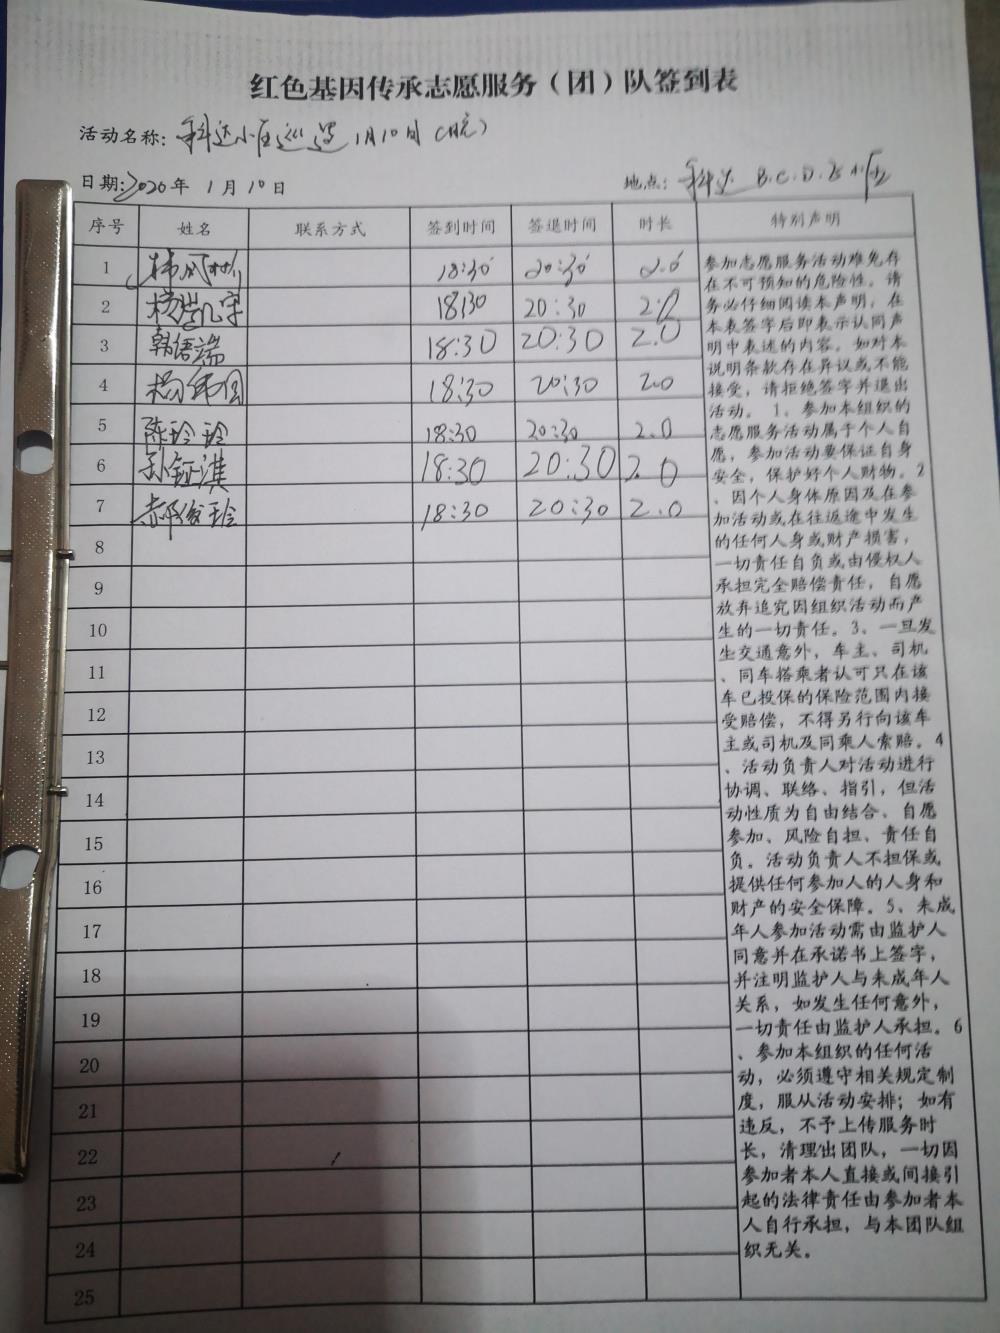 红色基因传承志愿服务（团）队签到表
活动名称：科达小区巡逻1月10日（晚）
日期：2026年1月10日 地点：科达B.C.D.E小区
序号 姓名 联系方式 签到时间 签退时间 时长 特别声明
1 18:30 20:30 2.0
2 18:30 20:30 2.0
3 韩语端 18:30 20:30 2.0
4 18:30 20:30 2.0
5 陈玲玲 18:30 20:30 2.0
6 孙钲淇 18:30 20:30 2.0
7 郝俊玲 18:30 20:30 2.0
8
9
10
11
12
13
14
15
16
17
18
19
20
21
22
23
24
25
参加志愿服务活动难免存
在不可预知的危险性。请
务必仔细阅读本声明，在
本表签字后即表示认同声
明中表述的内容。如对本
说明条款存在异议或不能
接受，请拒绝签字并退出
活动。1、参加本组织的
志愿服务活动属于个人自
愿，参加活动要保证自身
安全，保护好个人财物。2
、因个人身体原因及在参
加活动或在往返途中发生
的任何人身或财产损害，
一切责任自负或由侵权人
承担完全赔偿责任，自愿
放弃追究因组织活动而产
生的一切责任。3、一旦发
生交通意外，车主、司机
、同车搭乘者认可只在该
车已投保的保险范围内接
受赔偿，不得另行向该车
主或司机及同乘人索赔。4
、活动负责人对活动进行
协调、联络、指引，但活
动性质为自由结合、自愿
参加、风险自担、责任自
负。活动负责人不担保或
提供任何参加人的人身和
财产的安全保障。5、未成
年人参加活动需由监护人
同意并在承诺书上签字，
并注明监护人与未成年人
关系，如发生任何意外，
一切责任由监护人承担。6
、参加本组织的任何活
动，必须遵守相关规定制
度，服从活动安排；如有
违反，不予上传服务时
长，清理出团队，一切因
参加者本人直接或间接引
起的法律责任由参加者本
人自行承担，与本团队组
织无关。